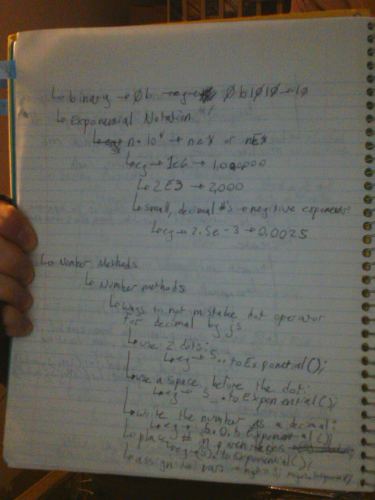 ↳ binary → 0b → eg → 0b1010 → 10
↳ Exponential Notation
↳ n · 10^x → nex or nEx
↳ eg → 1e6 → 1,000,000
↳ 2E3 → 2,000
↳ small, decimal #'s → negitive exponents
↳ eg → 2.5e-3 → 0.0025
↳ Number Methods
↳ Number methods
↳ ways to not mistake dot operator
for decimal by js
↳ use 2 dots:
↳ eg → 5..toExponential();
↳ use a space before the dot:
↳ eg → 5 .toExponential()
↳ write the number as a decimal:
↳ eg → 5.0.toExponential()
↳ place in parentheses
↳ eg → toExponential();
↳ assign to